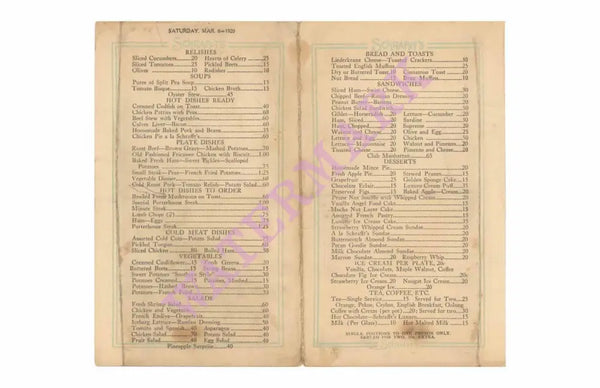 SATURDAY, MAR. 6—1920
SCHRAFFT'S
RELISHES
Sliced Cucumbers 20 Hearts of Celery 25
Sliced Tomatoes 25 Pickled Beets 15
Olives 10 Radishes 10
SOUPS
Puree of Split Pea Soup 15
Tomato Bisque 15 Chicken Broth 15
Oyster Stew 45
HOT DISHES READY
Creamed Codfish on Toast 40
Chicken Patties with Peas 60
Beef Stew with Vegetables 60
Calves Liver—Bacon 60
Homemade Baked Pork and Beans 35
Chicken Pie a la Schrafft's 60
PLATE DISHES
Roast Beef—Brown Gravy—Mashed Potatoes 70
Old Fashioned Fricassee Chicken with Biscuit 1.00
Baked Fresh Ham—Sweet Pickles—Scalloped
Potatoes 75
Small Steak—Peas—French Fried Potatoes 1.25
Vegetable Dinner 60
Cold Roast Pork—Tomato Relish—Potato Salad 60
HOT DISHES TO ORDER
Broiled Fresh Mushrooms on Toast
Special Porterhouse Steak
Minute Steak
Lamb Chops (2) 75
Ham—Eggs 75
Porterhouse Steak 1.25
COLD MEAT DISHES
Assorted Cold Cuts—Potato Salad
Pickled Tongue
Sliced Chicken 80 Boiled Ham 50
VEGETABLES
Creamed Cauliflower 15 Fresh Greens
Buttered Beets 15 String Beans 15
Sweet Potatoes "Southern Style"
Potatoes Creamed 15 Potatoes, Mashed 15
Potatoes—Hashed Brown 30
Potatoes—French Fried 30
SALADS
Fresh Shrimp Salad 60
Chicken and Vegetable 60
French Endive—Grapefruit 40
Iceberg Lettuce—Russian Dressing 50
Tomato and Spinach 40 Asparagus 40
Chicken Salad 70 Potato Salad
Fruit Salad 40 Egg Salad 40
Pineapple Surprise 40
SCHRAFFT'S
BREAD AND TOASTS
Liederkranz Cheese—Toasted Crackers 30
Toasted English Muffins 25
Dry or Buttered Toast 10 Cinnamon Toast 20
Nut Bread 10 Bran Muffins 10
SANDWICHES
Sliced Ham—Swiss Cheese 30
Chipped Beef—Russian Dressing
Peanut Butter—Bacon 20
Chicken Salad Sandwich
Lettuce—Cucumber 20
Ham, Sliced 20 Sardine 30
Ham Chopped 20 Supreme 30
Walnut and Cheese 20 Olive and Egg 25
Lettuce and Cheese 20 Chicken 40
Lettuce—Mayonnaise 20 Walnut and Pimiento 20
Toasted Cheese 20 Pimiento and Cheese 20
Club Manhattan 65
DESSERTS
Homemade Mince Pie
Fresh Apple Pie 20 Stewed Prunes 15
Grapefruit 25 Golden Sponge Cake 15
Chocolate Eclair 15 Lemon Cream Puff 15
Preserved Figs 15 Baked Apple—Cream 20
Prune Nut Souffle with Whipped Cream 20
Vanilla Angel Food Cake
Mocha Nut Layer Cake
Assorted French Pastry
Lemon Ice Cream Cake
Strawberry Whipped Cream Sundae
A la Schrafft's Sundae
Butterscotch Almond Sundae 30
Pecan Goodie Sundae 30
Milk Chocolate Almond Sundae 30
Maroon Sundae 20 Raspberry Whip 20
ICE CREAM PER PLATE, 20c
Vanilla, Chocolate, Maple Walnut, Coffee
Chocolate Fig Ice Cream 30
Strawberry Ice Cream 30 Nougat Ice Cream 30
Orange Ice 20
TEA, COFFEE, ETC.
Tea—Single Service 15 Served for Two 25
Orange, Pekoe, Ceylon, English Breakfast, Oolong
Coffee with Cream (per pot) 20; Served for two 30
Hot Chocolate—Schrafft's Luxuro 15
Milk (Per Glass) 10 Hot Malted Milk 15
SINGLE PORTIONS TO ONE PERSON ONLY.
SERVED FOR TWO, 10c EXTRA.
WATERMARK